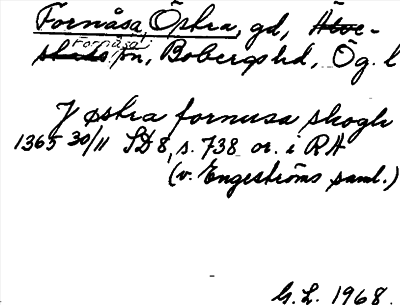 Fornåsa, Östra, gd, Älve-
stads Fornåsa sn, Bobergs hd, Ög. l
J østra fornusa skogh
1365 30/11 SD 8, s. 738 or. i RA
(v. Engeströms saml.)
G. L. 1968.